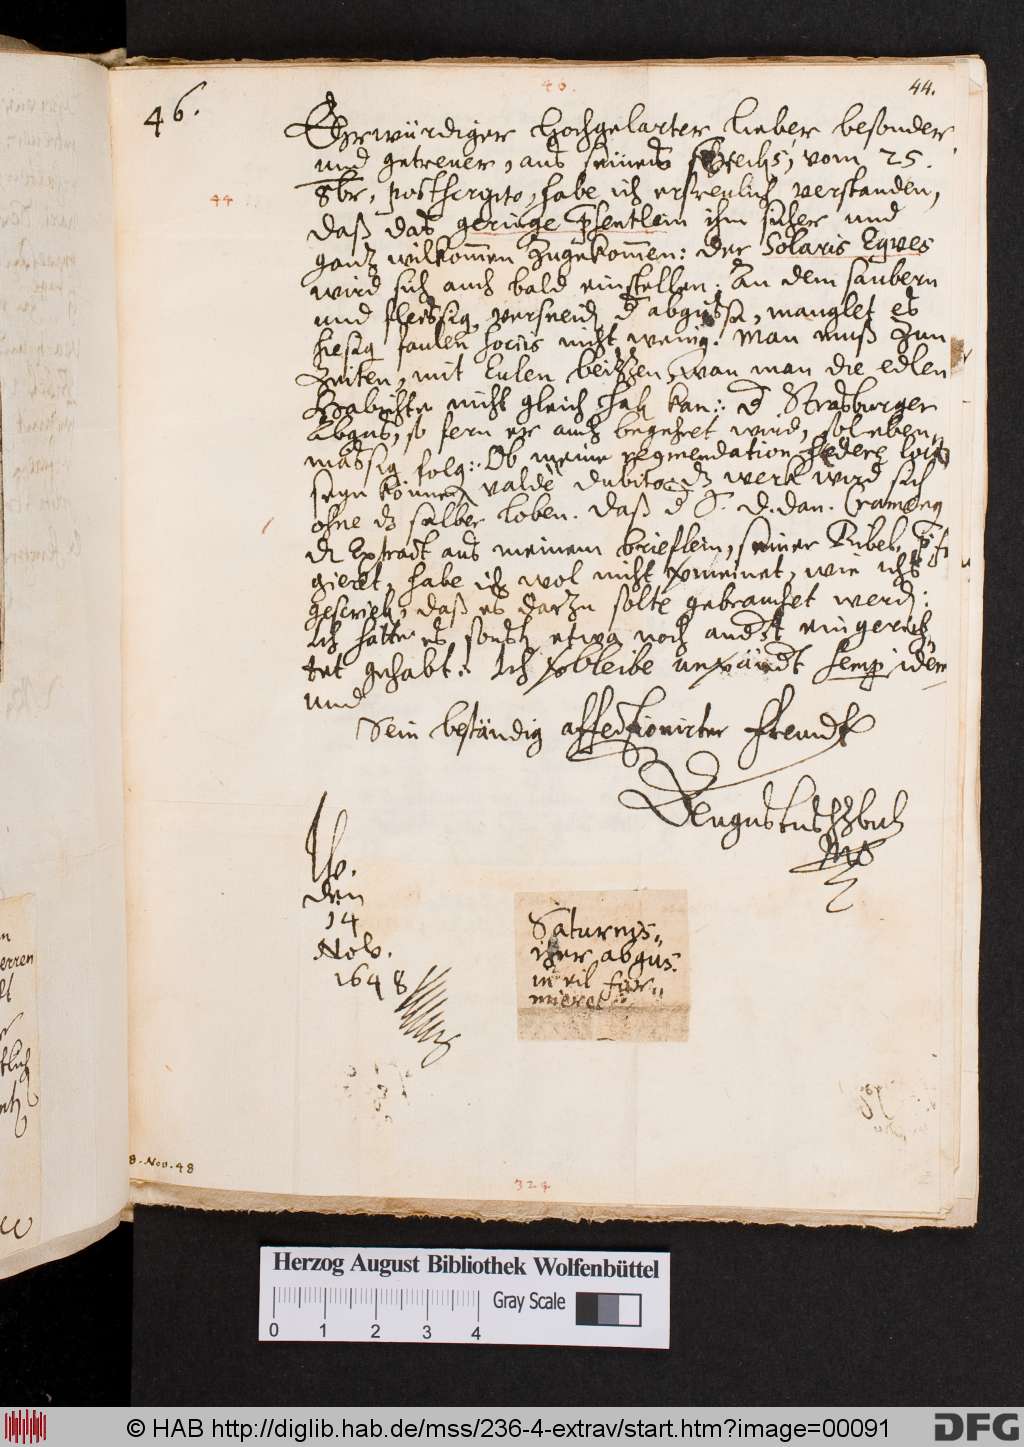 46.
46.
44.
44
Ehrwürdiger Hochgelarter lieber besonder
und getreuer, aus seines vom 25.
8br. postscripto, habe ich erfreulich verstanden,
daß das geringe pfentlein ihm sicher und
ganz wilkommen zugekommen: der Solaris Eques
wird sich auch bald einstellen: An dem saubern
und fleissig abguss, manglet es
hiesig faulen sociis nicht wenig. Man muß zun
Zeiten, mit Eulen beitzen, wan man die edlen
Habichte nicht gleich hab kan: d Strasburger
Abgus, so fern er auch begehret wird, sol eben
mässig folg: Ob meine
segn können valdè dubito: dz werk wird sich
ohne dz selber loben. Daß d H. D. Dan.
d Extract aus meinem brieflein, seiner Bibel,
giert, habe ich wol nicht vermeinet, wie ichs
geschrieb, daß es darzu solte gebrauchet werd:
Ich hätte es sonst etwa noch andst eingerich
tet gehabt: Ich verbleibe semp idem
und
Sein beständig affectionirter Freundt
Augustus HzBuL
Mp
W.
den
14
Nov.
1648
Saturnis„
cher abgus.
in eil for„
mieret
8. Nov. 48
324
erren
Herzog August Bibliothek Wolfenbüttel
Gray Scale
0 1 2 3 4
© HAB http://diglib.hab.de/mss/236-4-extrav/start.htm?image=00091
DFG